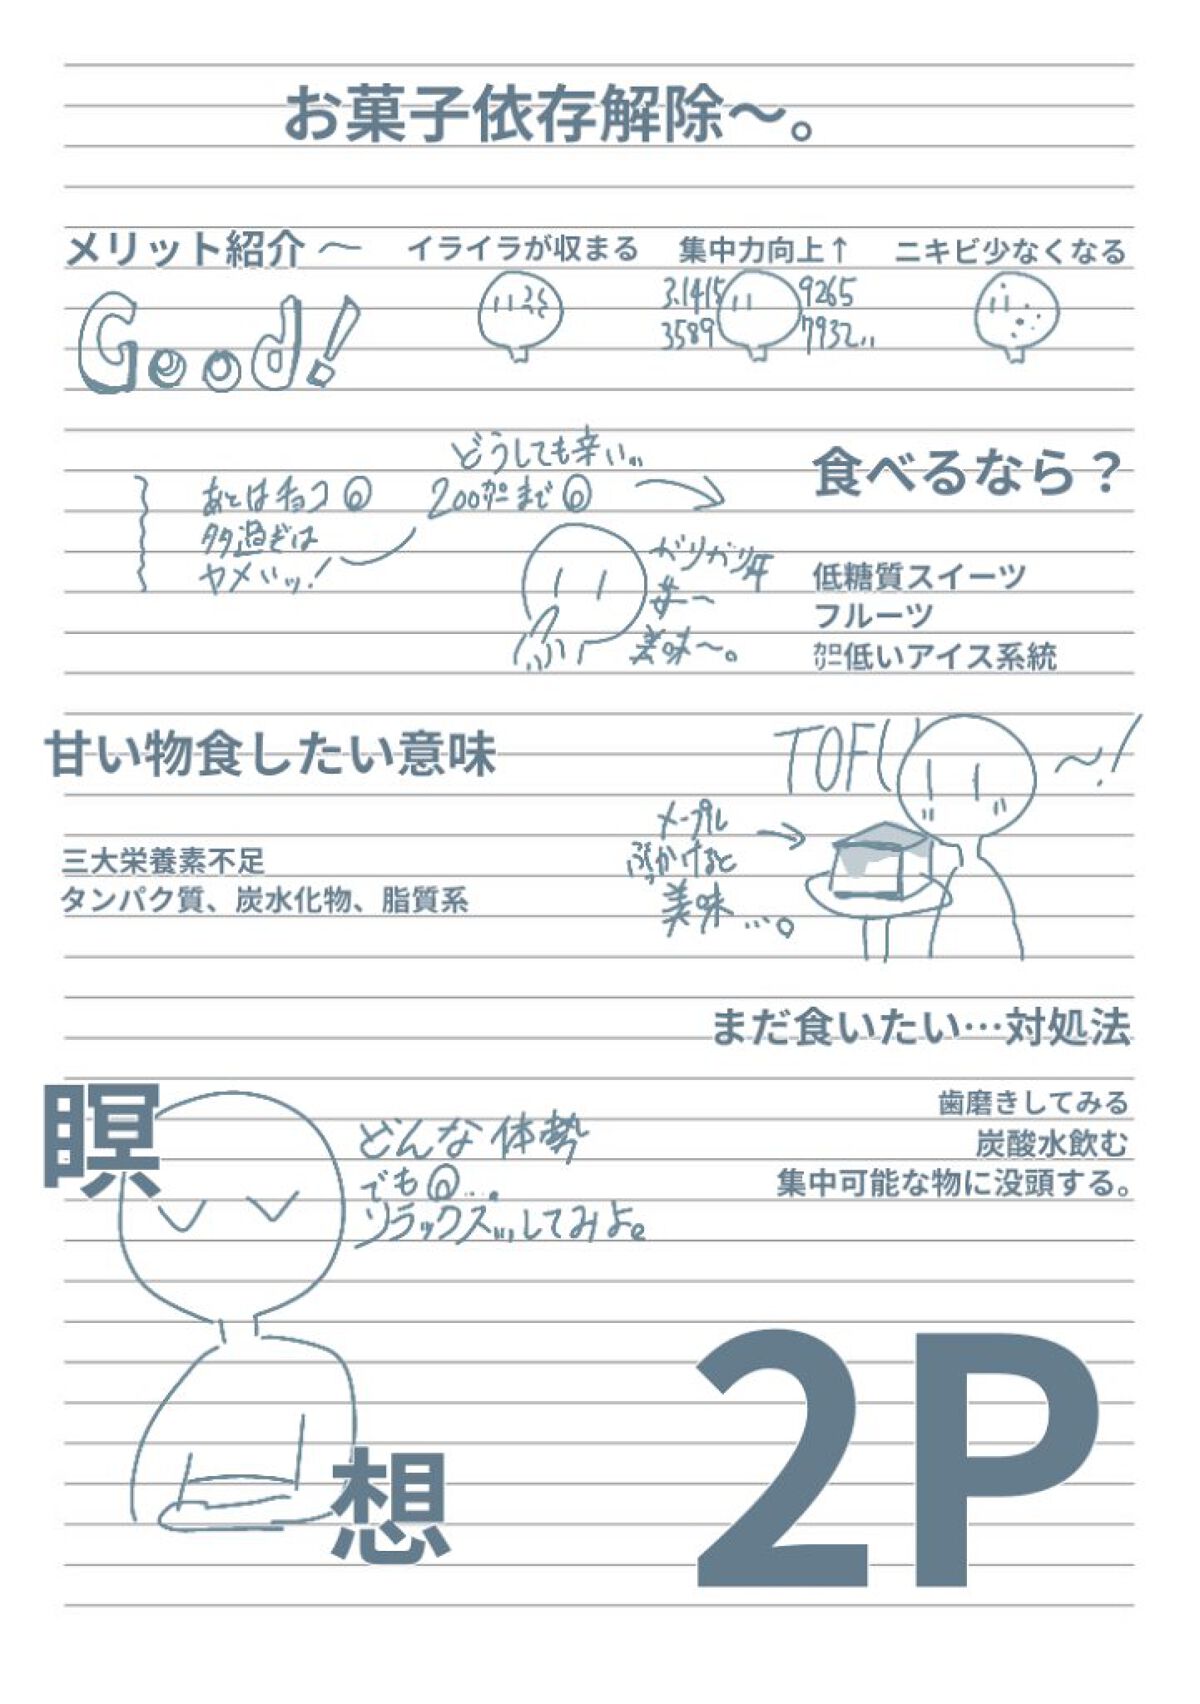 お菓子依存解除〜。
メリット紹介 〜
イライラが収まる
集中力向上↑
ニキビ少なくなる
Good!
3.1415 9265
3589 7932...
どうしても辛い...
200カロリーまで◎
あとはチョコ◎
多過ぎは
ヤメいッ!
食べるなら？
ガリガリ
美味〜。
低糖質スイーツ
フルーツ
カロリー低いアイス系統
甘い物食したい意味
三大栄養素不足
タンパク質、炭水化物、脂質系
TOFU〜!
メープル
ぶっかけると
美味...。
まだ食いたい…対処法
歯磨きしてみる
炭酸水飲む
集中可能な物に没頭する。
瞑
どんな体勢
でも◎...。
リラックス...してみよ。
想
2P